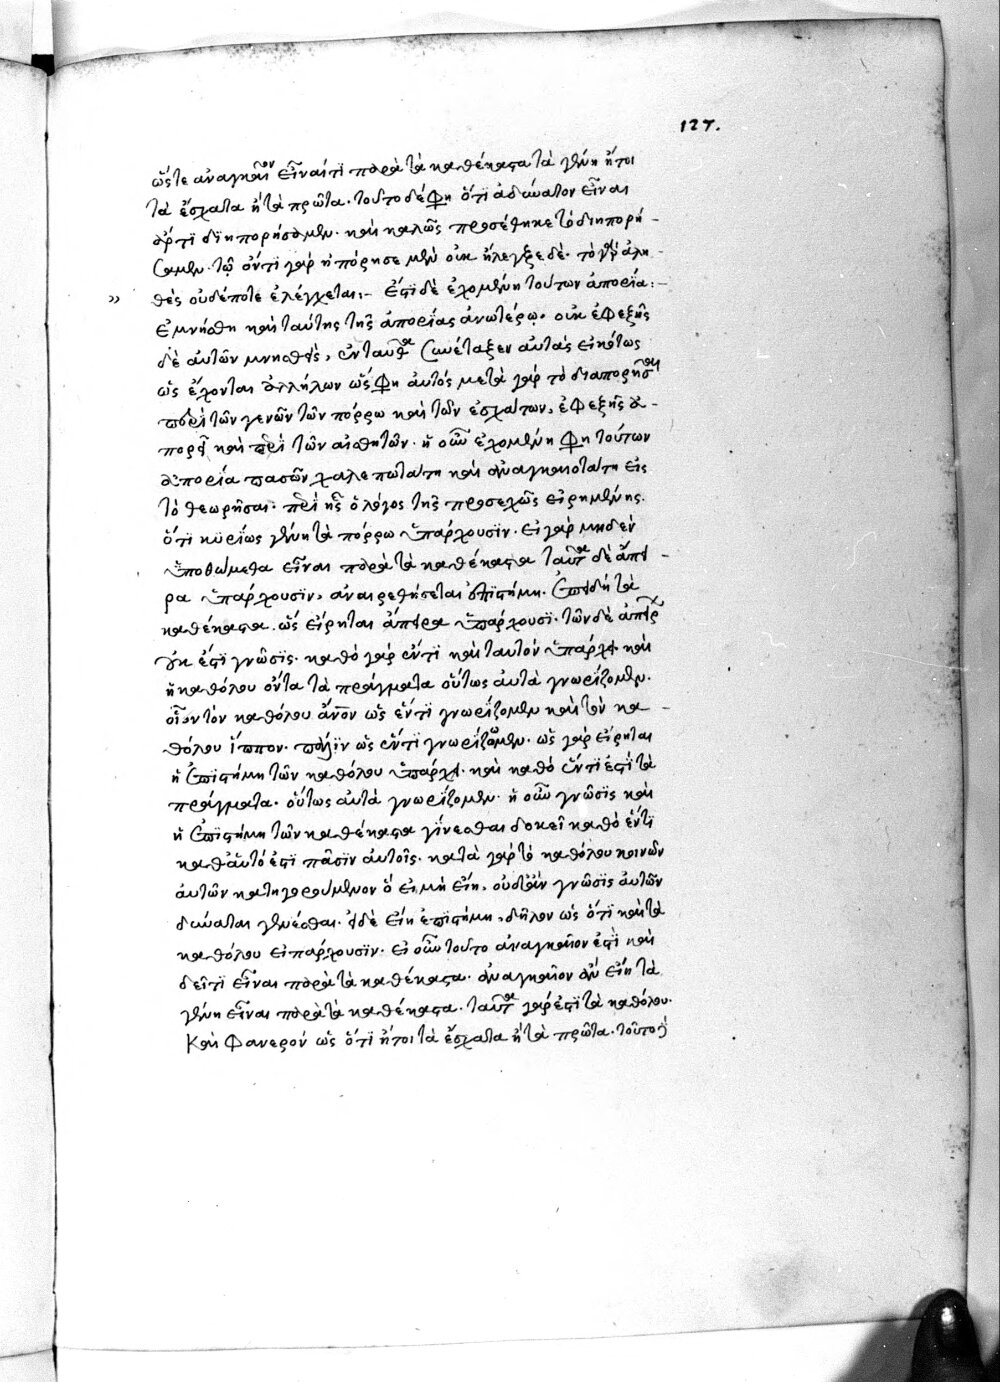 127.
ὥστε ἀναγκαῖον εἶναί τι παρὰ τὰ καθέκαστα τὰ γένη ἤτοι
τὰ ἔσχατα ἢ τὰ πρῶτα· τοῦτο δέ φη ὅτι ἀδύνατον εἶναι
ἄρτι διηπορήσαμεν. καὶ καλῶς προσέθηκε τὸ διηπορή-
σαμεν. τῷ ὄντι γὰρ ἠπόρησε μὲν οὐκ ἤλεγξε δέ. τὸ γὰρ ἀλη-
θὲς οὐδέποτε ἐλέγχεται:- Ἔστι δὲ ἐχομένη τούτων ἀπορία:-
ἐμνήσθη καὶ ταύτης τῆς ἀπορίας ἀνωτέρω. οὐκ ἐφεξῆς
δὲ αὐτῶν μνησθεὶς, ἐνταῦθα συνέταξεν αὐτὰς εἰκότως
ὡς ἔχονται ἀλλήλων ὥς φη αὐτός μετὰ γὰρ τὸ διαπορῆσαι
περὶ τῶν γενῶν τῶν πόρρω καὶ τῶν ἐσχάτων, ἐφεξῆς ἀ-
πορεῖ καὶ περὶ τῶν αἰσθητῶν. ἡ οὖν ἐχομένη φη τούτων
ἀπορία πασῶν χαλεπωτάτη καὶ ἀναγκαιοτάτη εἰς
τὸ θεωρῆσαι. περὶ ἧς ὁ λόγος τῆς προσεχῶς εἰρημένης.
ὅτι κυρίως γένη τὰ πόρρω ὑπάρχουσιν. εἰ γὰρ μηδὲν
ὑποθώμεθα εἶναι παρὰ τὰ καθέκαστα ταῦτα δὲ ἄπει-
ρα ὑπάρχουσιν, ἀναιρεθήσεται ἐπιστήμη. ἐπειδὴ τὰ
καθέκαστα. ὥς εἴρηται ἄπειρα ὑπάρχουσι. τῶν δὲ ἀπείρων
οὐκ ἔστι γνῶσις. καθὸ γὰρ ἕν τι καὶ ταυτὸν ὑπάρχει. καὶ
ἡ καθόλου ὄντα τὰ πράγματα οὕτως αὐτὰ γνωρίζομεν.
οἷον τὸν καθόλου ἄνον ὡς ἕν τι γνωρίζομεν καὶ τὸν κα-
θόλου ἵππον. πάλιν ὡς ἕν τι γνωρίζομεν. ὡς γὰρ εἴρηται
ἡ ἐπιστήμη τῶν καθόλου ὑπάρχει. καὶ καθὸ ἕν τι ἐστὶ τὰ
πράγματα. οὕτως αὐτὰ γνωρίζομεν. ἡ οὖν γνῶσις καὶ
ἡ ἐπιστήμη τῶν καθέκαστα γίνεσθαι δοκεῖ καθὸ ἕν τι
καθ' αὑτό ἐστι πᾶσιν αὐτοῖς. κατὰ γὰρ τὸ καθόλου κοινῶν
αὐτῶν κατηγορούμενον ὃ εἰ μὴ εἴη, γνῶσις αὐτῶν
δύναται γενέσθαι. εἰ δὲ εἴη ἐπιστήμη, δῆλον ὡς ὅτι καὶ τὰ
καθόλου εἰ πάρχουσιν. εἰ οὖν τοῦτο ἀναγκαῖον ἐστὶ καὶ
δεῖ τι εἶναι παρὰ τὰ καθέκαστα. ἀναγκαῖον ἂν εἴη τὰ
γένη εἶναι παρὰ τὰ καθέκαστα. ταῦτα γάρ ἐστι τὰ καθόλου.
Καὶ φανερόν ὡς ὅτι ἤτοι τὰ ἔσχατα ἢ τὰ πρῶτα. τοῦτο